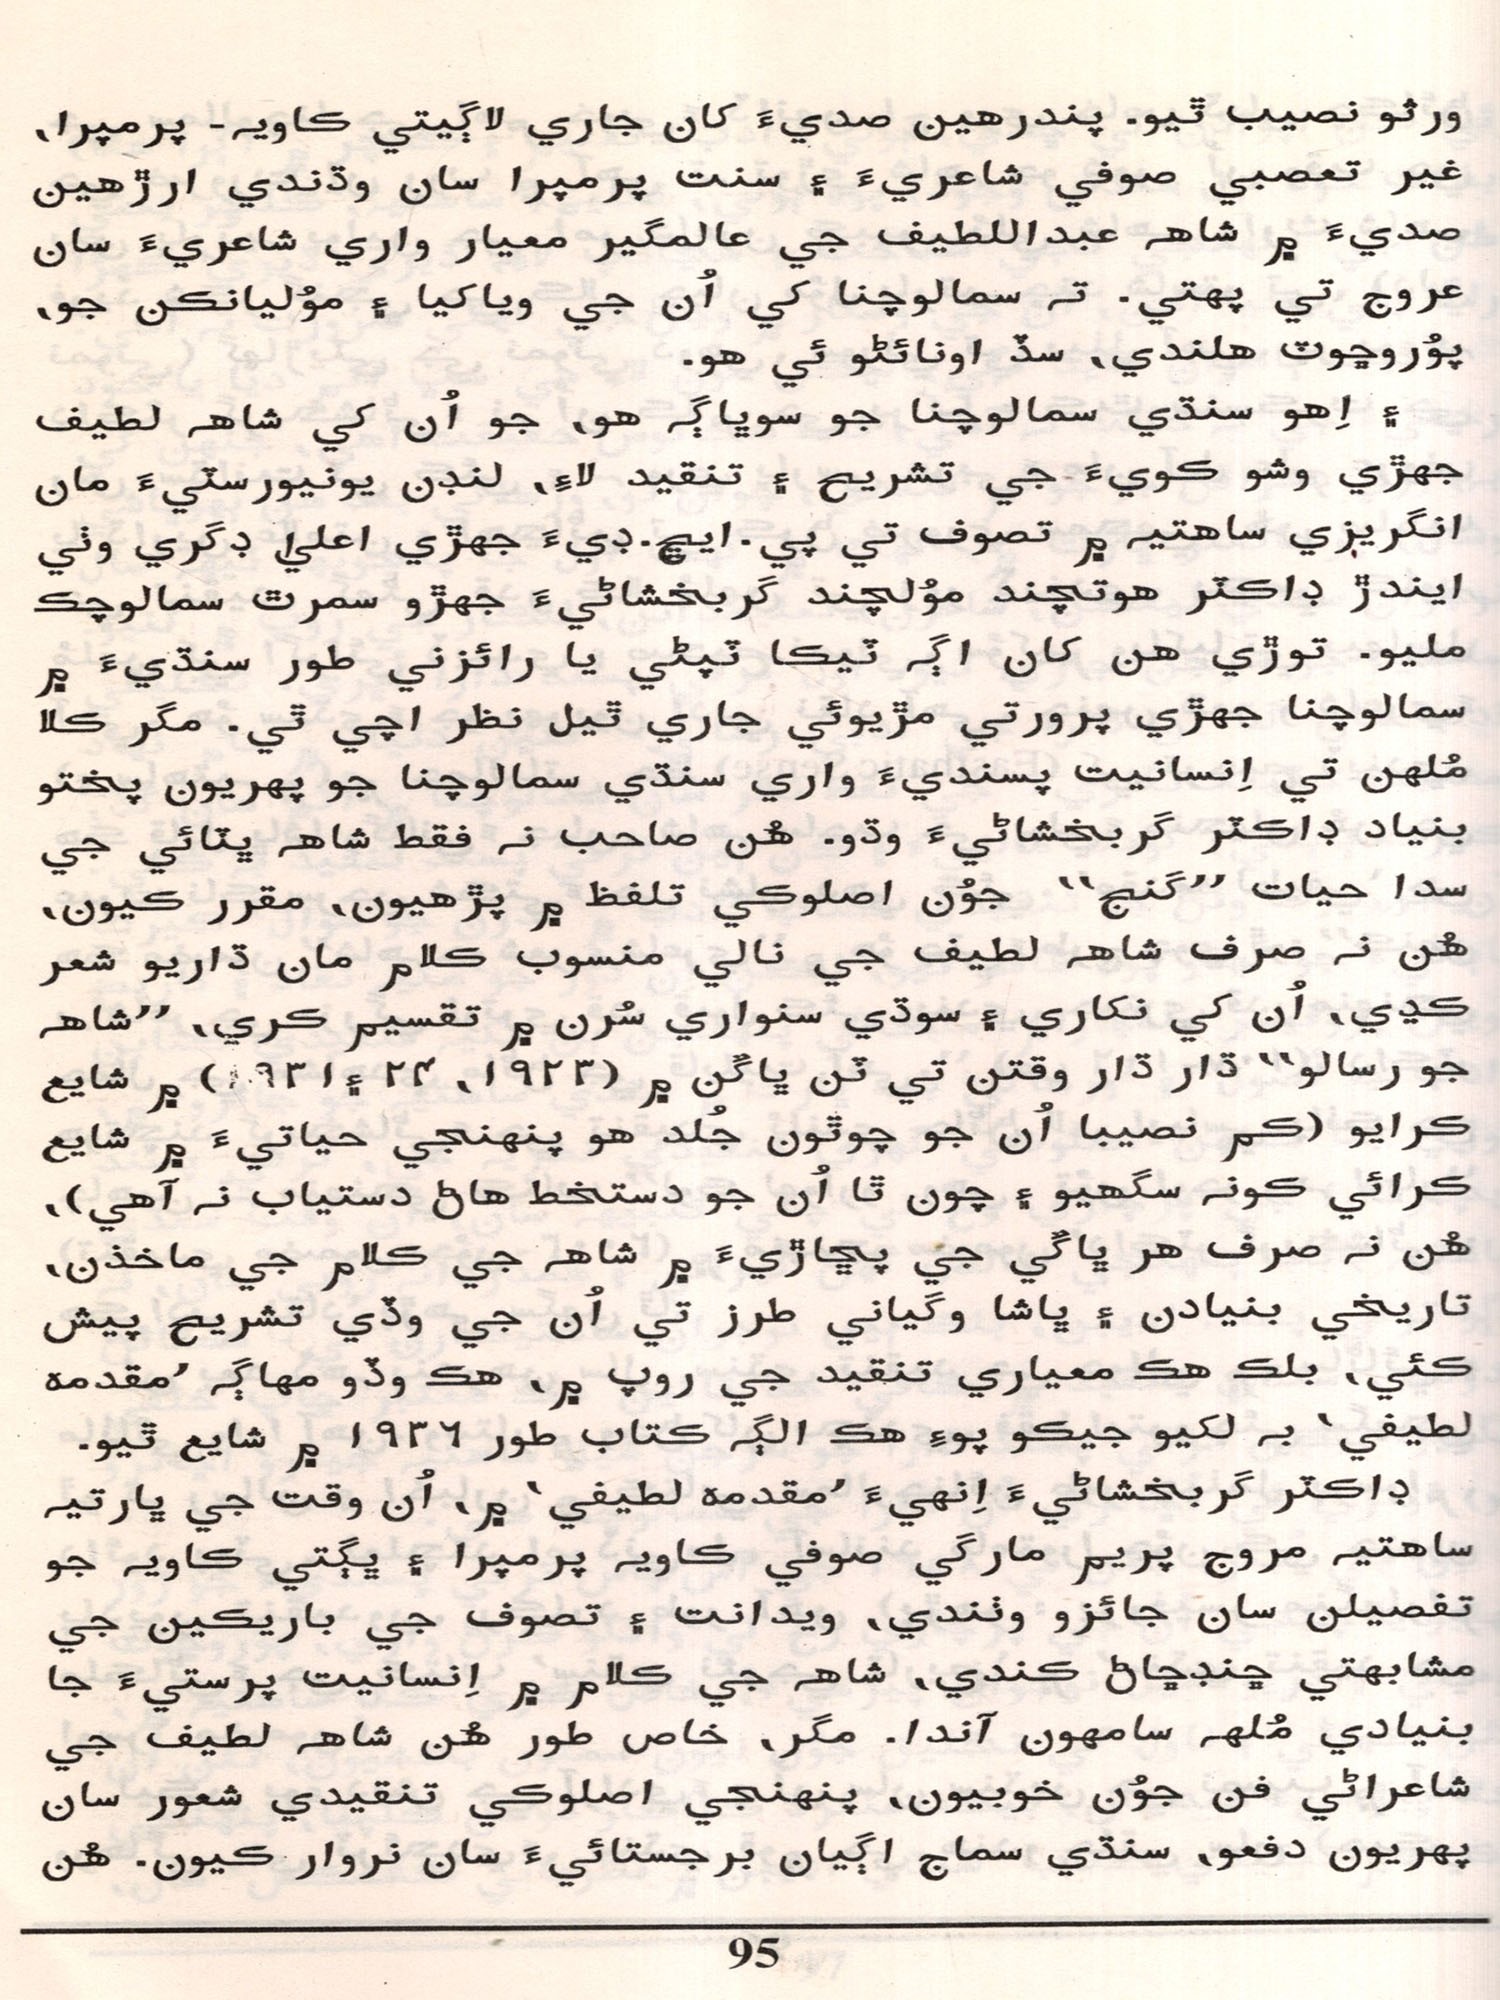 ورثو نصيب ٿيو. پندرهين صديءَ کان جاري لاڳيتي ڪاويہ- پرمپرا،
غير تعصبي صوفي شاعريءَ ۽ سنت پرمپرا سان وڌندي ارڙهين
صديءَ ۾ شاھہ عبداللطيف جي عالمگير معيار واري شاعريءَ سان
عروج تي پهتي. تہ سمالوچنا کي اُن جي وياکيا ۽ موُليانڪن جو،
پوُروڇوٽ هلندي، سڏ اونائڻو ئي هو.
۽ اِهو سنڌي سمالوچنا جو سوڀاڳہ هو، جو اُن کي شاھہ لطيف
جهڙي وشو ڪويءَ جي تشريح ۽ تنقيد لاءِ، لنڊن يونيورسٽيءَ مان
انگريزي ساهتيہ ۾ تصوف تي پي.ايڇ.ڊيءَ جهڙي اعليٰ ڊگري وٺي
ايندڙ ڊاڪٽر هوتچند موُلچند گربخشاڻيءَ جهڙو سمرٿ سمالوچڪ
مليو. توڙي هن کان اڳہ ٽيڪا ٽپڻي يا رائزني طور سنڌيءَ ۾
سمالوچنا جهڙي پرورتي مڙيوئي جاري ٿيل نظر اچي ٿي. مگر ڪلا
مُلهن تي اِنسانيت پسنديءَ واري سنڌي سمالوچنا جو پهريون پختو
بنياد ڊاڪٽر گربخشاڻيءَ وڌو. هُن صاحب نہ فقط شاھہ ڀٽائي جي
سدا حيات ”گنج“ جوُن اصلوڪي تلفظ ۾ پڙهيون، مقرر ڪيون،
هُن نہ صرف شاھہ لطيف جي نالي منسوب ڪلام مان ڌاريو شعر
ڪڍي، اُن کي نکاري ۽ سوڌي سنواري سُرن ۾ تقسيم ڪري، ”شاھہ
جو رسالو“ ڌار ڌار وقتن تي ٽن ڀاڱن ۾ (١٩٢٣، ٢۴ ۽ ١٩٣١) ۾ شايع
ڪرايو (ڪم نصيبا اُن جو چوٿون جُلد هو پنهنجي حياتيءَ ۾ شايع
ڪرائي ڪونہ سگهيو ۽ چون ٿا اُن جو دستخط هاڻ دستياب نہ آهي)،
هُن نہ صرف هر ڀاڱي جي پڇاڙيءَ ۾ شاھہ جي ڪلام جي ماخذن،
تاريخي بنيادن ۽ ڀاشا وگياني طرز تي اُن جي وڏي تشريح پيش
ڪئي، بلڪ هڪ معياري تنقيد جي روپ ۾، هڪ وڏو مهاڳہ ’مقدمه
لطيفي‘ بہ لکيو جيڪو پوءِ هڪ الڳہ ڪتاب طور ١٩٣٦ ۾ شايع ٿيو.
ڊاڪٽر گربخشاڻيءَ اِنهيءَ ’مقدمه لطيفي‘ ۾، اُن وقت جي ڀارتيہ
ساهتيہ مروج پريم مارگي صوفي ڪاويہ پرمپرا ۽ ڀڳتي ڪاويہ جو
تفصيلن سان جائزو وٺندي، ويدانت ۽ تصوف جي باريڪين جي
مشابهتي ڇنڊڇاڻ ڪندي، شاھہ جي ڪلام ۾ اِنسانيت پرستيءَ جا
بنيادي مُلهہ سامهون آندا. مگر، خاص طور هُن شاھہ لطيف جي
شاعراڻي فن جوُن خوبيون، پنهنجي اصلوڪي تنقيدي شعور سان
پهريون دفعو، سنڌي سماج اڳيان برجستائيءَ سان نروار ڪيون. هُن
95